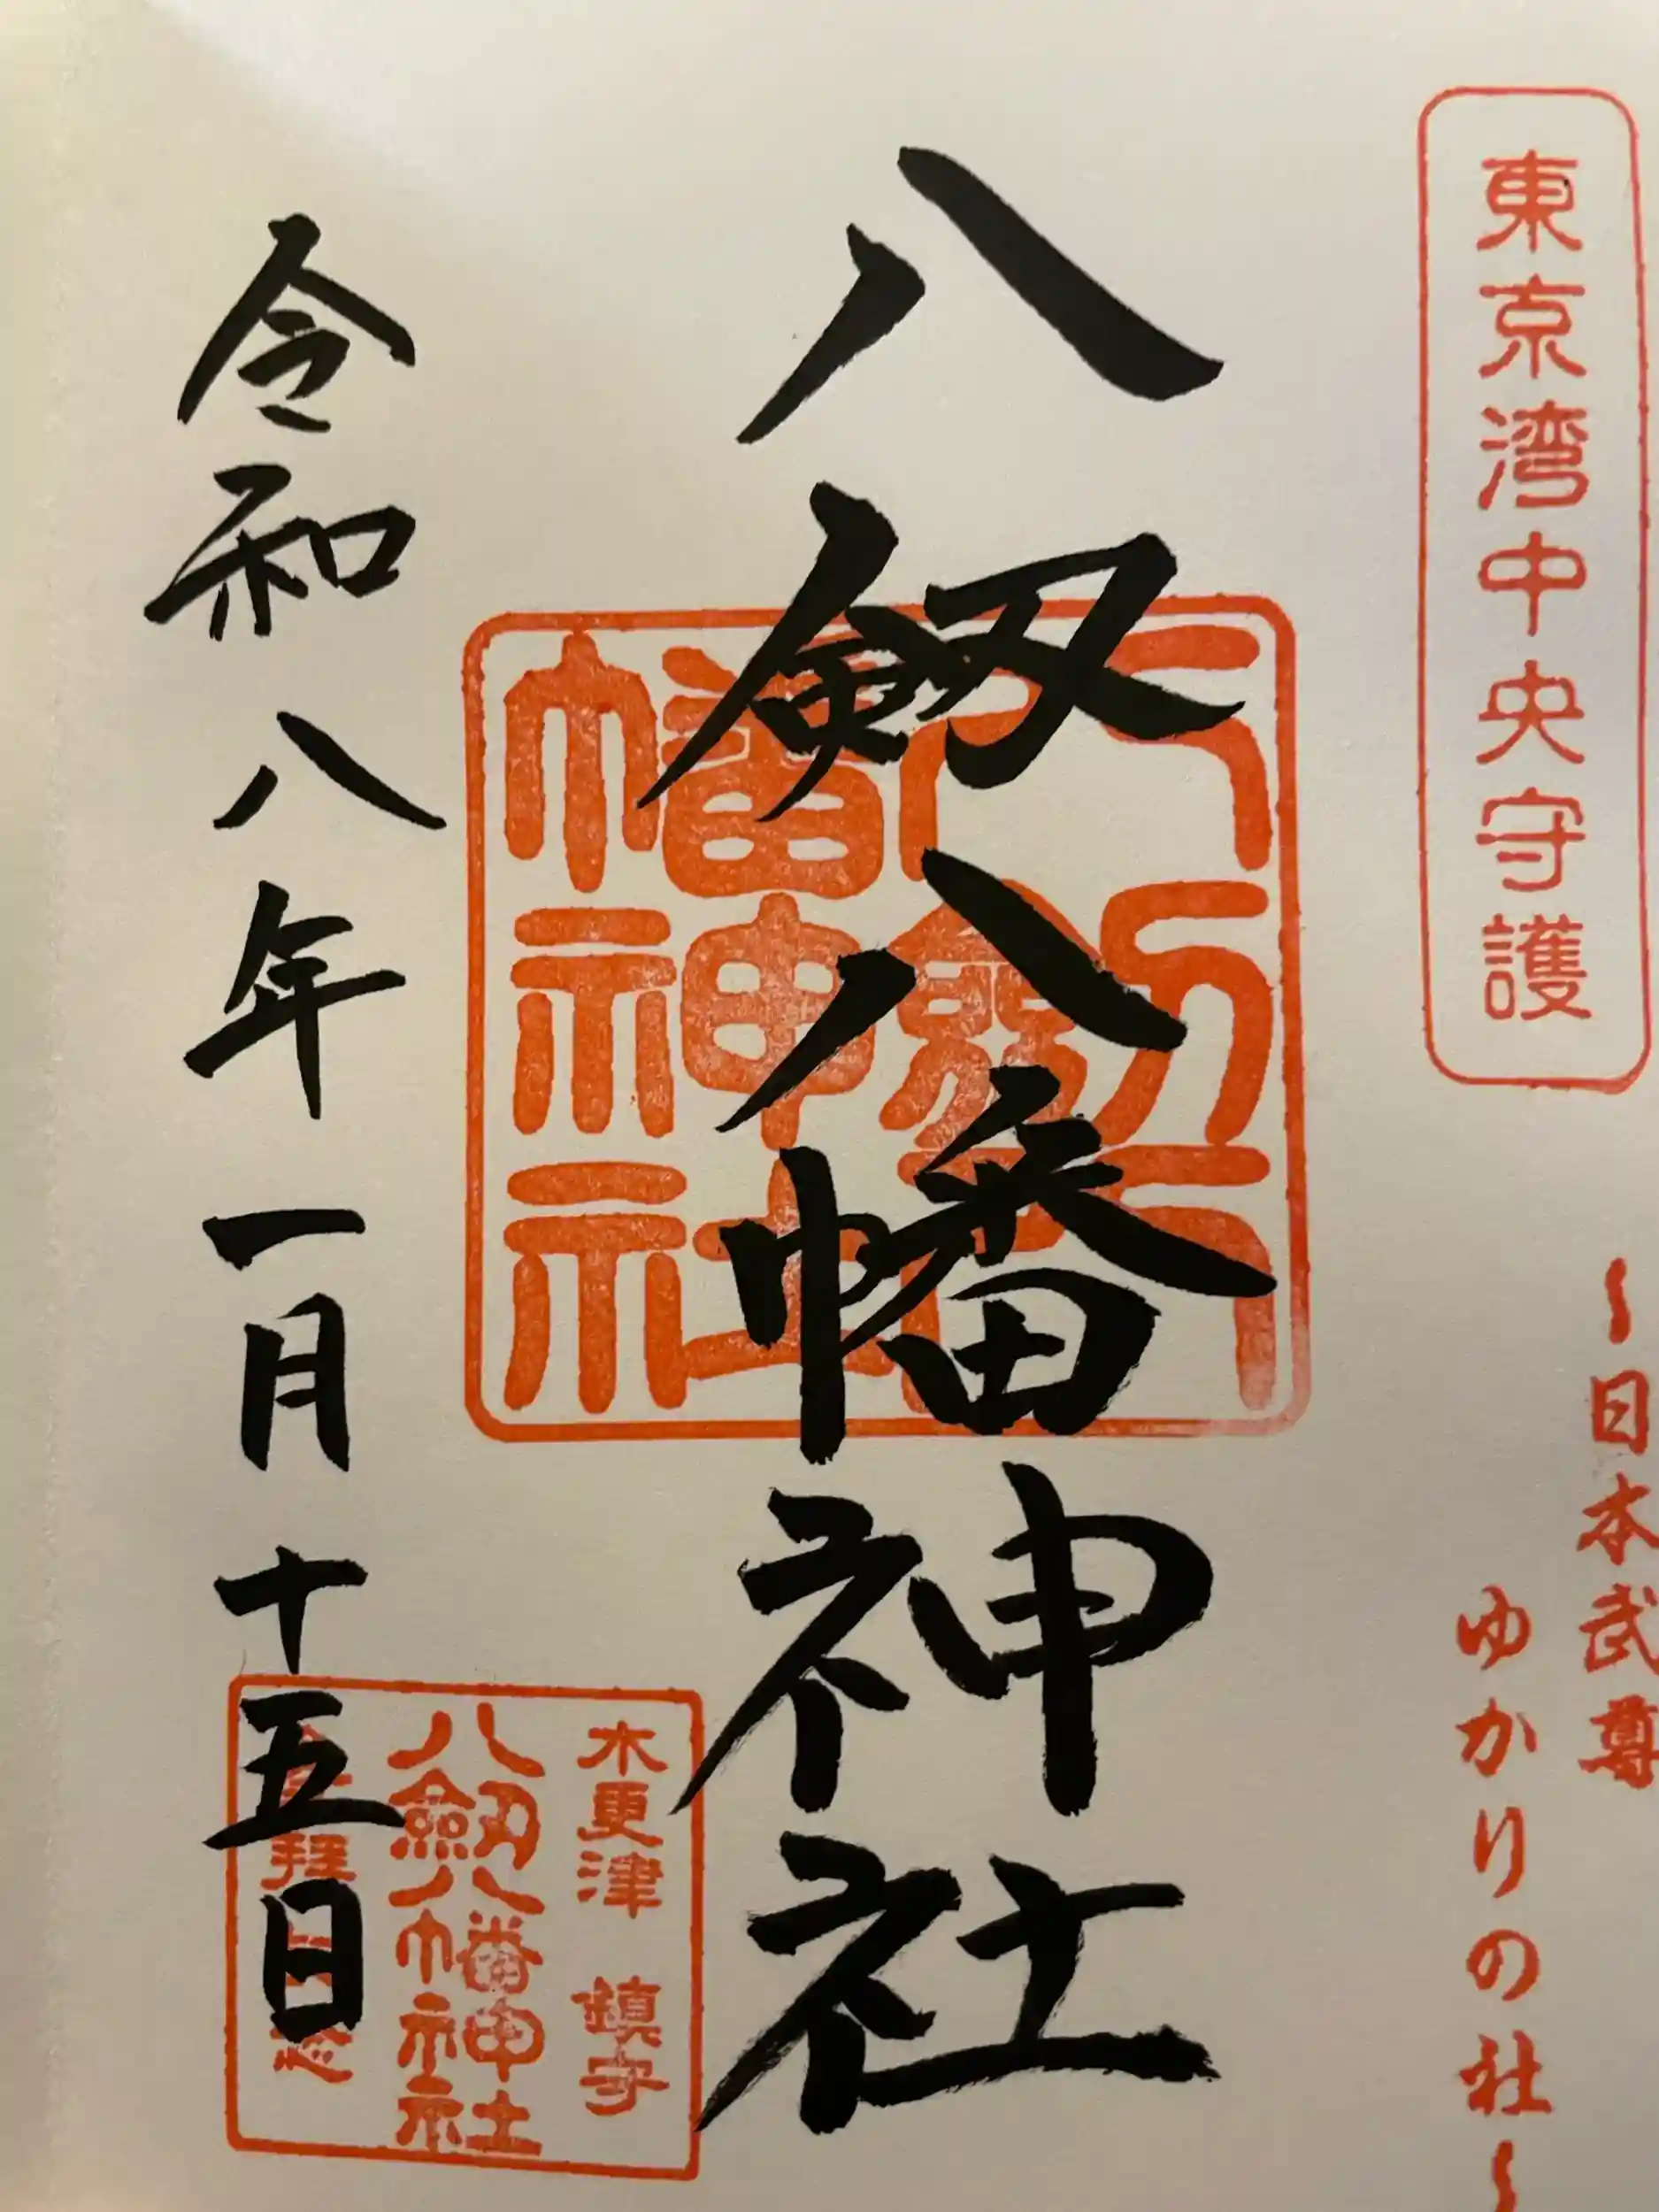 東京湾中央守護
～日本武尊
ゆかりの社～
八剱八幡神社
八剱八幡神社
木更津 鎮守
八剱八幡神社
令和八年一月十五日